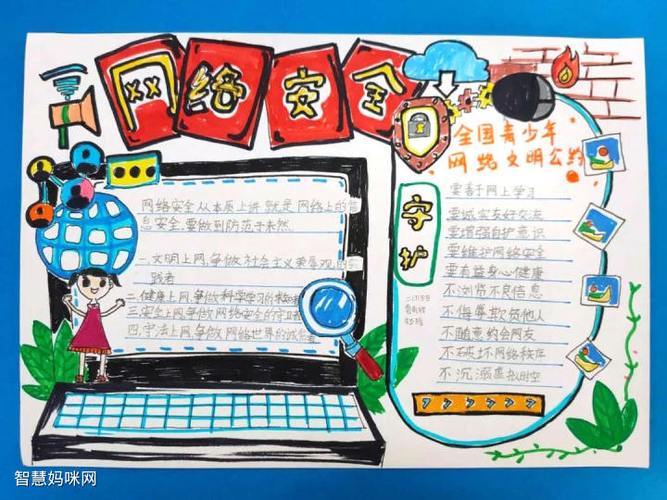 网络安全
全国青少年
网络文明公约
网络安全从本质上讲就是网络上的信
息安全,要做到防范于未然.
一.文明上网,争做社会主义荣辱观的实
践者
二.健康上网,争做科学学习的
三.安全上网,争做网络安全的守卫者
四.守法上网,争做网络世界的诚信者
守护
要善于网上学习
要诚实友好交流
要增强自护意识
要维护网络安全
要有益身心健康
不浏览不良信息
不侮辱欺负他人
不随意约会网友
不破坏网络秩序
不沉溺虚拟时空
智慧妈咪网